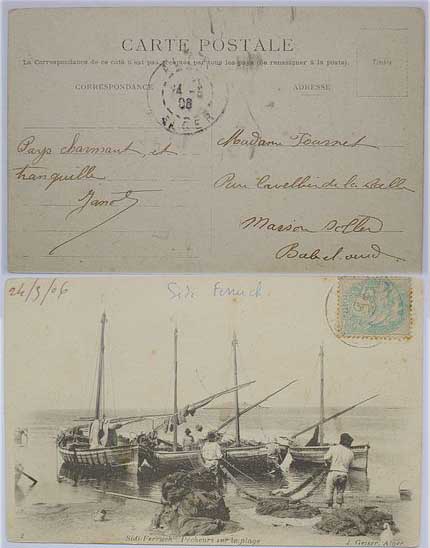 CARTE POSTALE
La Correspondance de ce côté n'est pas acceptée par tous les pays (Se renseigner à la poste).
CORRESPONDANCE
ADRESSE
Timbre
08
ALGER
Pays charmant, et
tranquille
Madame
Rue Cavellier de la Salle
Maison
Bab el oued
24/3/06
Sidi Ferruch
2
Sidi-Ferruch - Pêcheurs sur la plage
J. Geiser, Alger